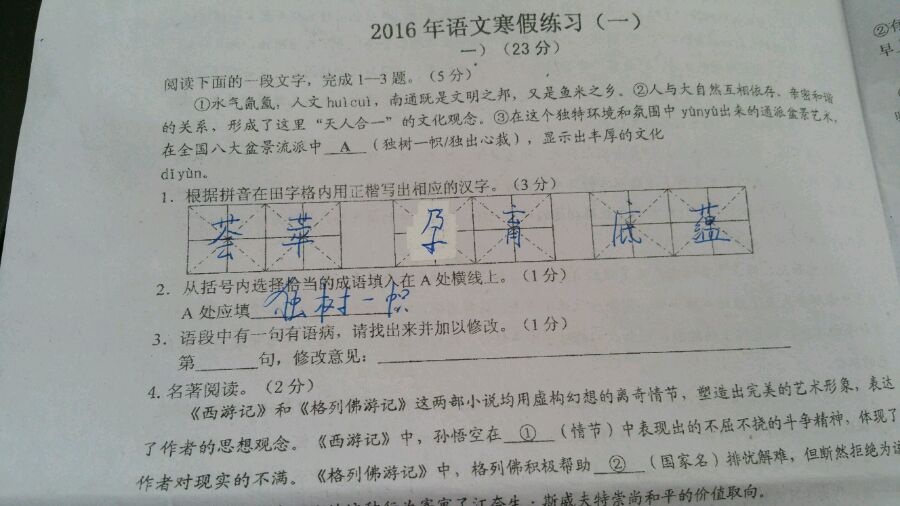 2016年语文寒假练习（一）
一）（23分）
阅读下面的一段文字，完成1—3题。（5分）
①水气氤氲，人文 huìcuì，南通既是文明之邦，又是鱼米之乡。②人与大自然互相依存、亲密和谐
的关系，形成了这里“天人合一”的文化观念。③在这个独特环境和氛围中 yùnyù出来的通派盆景艺术，
在全国八大盆景流派中 A （独树一帜/独出心裁），显示出丰厚的文化
dǐyùn。
1. 根据拼音在田字格内用正楷写出相应的汉字。（3分）
荟 萃 孕 育 底 蕴
2. 从括号内选择恰当的成语填入在A处横线上。（1分）
A处应填 独树一帜
3. 语段中有一句有语病，请找出来并加以修改。（1分）
第______句，修改意见：
4. 名著阅读。（2分）
《西游记》和《格列佛游记》这两部小说均用虚构幻想的离奇情节，塑造出完美的艺术形象，表达
了作者的思想观念。《西游记》中，孙悟空在 ① （情节）中表现出的不屈不挠的斗争精神，体现了
作者对现实的不满。《格列佛游记》中，格列佛积极帮助 ② （国家名）排忧解难，但断然拒绝为该
江奈生·斯威夫特崇尚和平的价值取向。
②
早